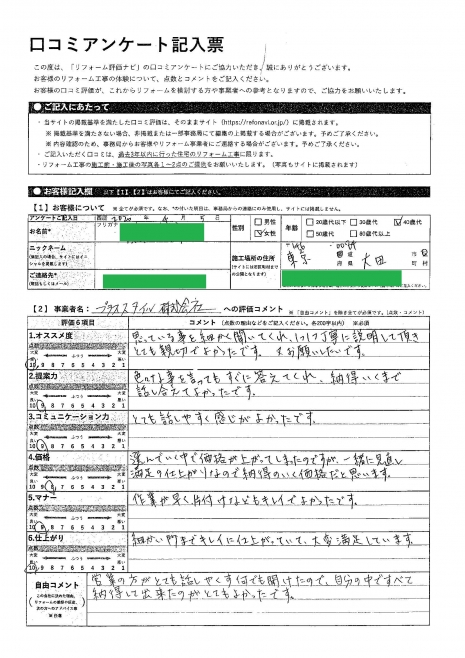 口コミアンケート記入票
この度は、「リフォーム評価ナビ」の口コミアンケートにご協力いただき、誠にありがとうございます。
お客様のリフォーム工事の体験について、点数とコメントをご記入ください。
お客様の口コミ評価が、これからリフォームを検討する方や事業者への参考となりますので、ご協力をお願いいたします。
●ご記入にあたって
・当サイトの掲載基準を満たした口コミ評価は、そのままサイト(https://refonavi.or.jp/)に掲載されます。
※掲載基準を満たさない場合、非掲載または一部事務局にて編集の上掲載する場合がございます。予めご了承ください。
※内容確認のため、事務局からお客様やリフォーム事業者にご連絡する場合がございます。予めご了承ください。
・ご記入いただく口コミは、過去3年以内に行った住宅のリフォーム工事に限ります。
・リフォーム工事の施工前・施工後の写真各1～2点のご提供をお願いいたします。(写真もサイトに掲載されます)
●お客様記入欄 以下【1】【2】はお客様にてご記入ください。
【1】お客様について ※全て必須です。なお、*の付いた項目は、事務局からの連絡にのみ使用し、サイトには掲載しません。
アンケートご記入日 西暦 年 4 月 5 日
性別 男性 女性
年齢 20歳代以下 30歳代 40歳代
50歳代 60歳以上
お名前* フリガナ
ニックネーム
ご連絡先*
施工場所の住所
東京 都道府県 大田 市区町村
【2】事業者名: プラススタイル株式会社 への評価コメント ※「自由コメント」を除き全てが必須です。(点数・コメント)
評価6項目 コメント (点数の理由などをご記入ください。各200字以内) ※必須
1.オススメ度
思っている事を細かく聞いてくれ、1つ1つ丁寧に説明して頂き
とても親切でよかったです。又お願いしたいです。
点数
大変良い ふつう 大変悪い
10 9 8 7 6 5 4 3 2 1
2.提案力
色々な事を言ってもすぐに答えてくれ、納得いくまで
話し合えてよかったです。
点数
大変良い ふつう 大変悪い
10 9 8 7 6 5 4 3 2 1
3.コミュニケーション力
とても話しやすく感じがよかったです。
点数
大変良い ふつう 大変悪い
10 9 8 7 6 5 4 3 2 1
4.価格
選んでいく中で価格が上がってしまったのですが、一緒に見直し
満足の仕上がりなので納得のいく価格だと思います。
点数
大変良い ふつう 大変悪い
10 9 8 7 6 5 4 3 2 1
5.マナー
作業が早く片付けなどもキレイでよかったです。
点数
大変良い ふつう 大変悪い
10 9 8 7 6 5 4 3 2 1
6.仕上がり
細かい所までキレイに仕上がっていて、大変満足しています。
点数
大変良い ふつう 大変悪い
10 9 8 7 6 5 4 3 2 1
自由コメント
営業の方がとても話しやすく何でも聞けたので、自分の中ですべて
納得して出来たのがとてもよかったです。
※任意